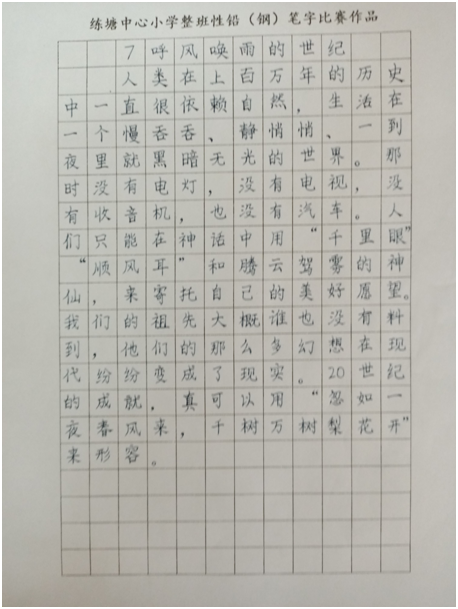 练塘中心小学整班性铅（钢）笔字比赛作品
7 呼风唤雨的世纪
人类在上百万年的历史
中一直很依赖自然，生活在
一个慢吞吞、静悄悄、一到
夜里就黑暗无光的世界。那
时没有电灯，没有电视，没
有收音机，也没有汽车。人
们只能在神话中用“千里眼”
“顺风耳”和腾云驾雾的神
仙，来寄托自己的美好愿望。
我们的祖先大概谁也没有料
到，他们的那么多幻想在现
代纷纷变成了现实。20世纪
的成就，真可以用“忽如一
夜春风来，千树万树梨花开”
来形容。